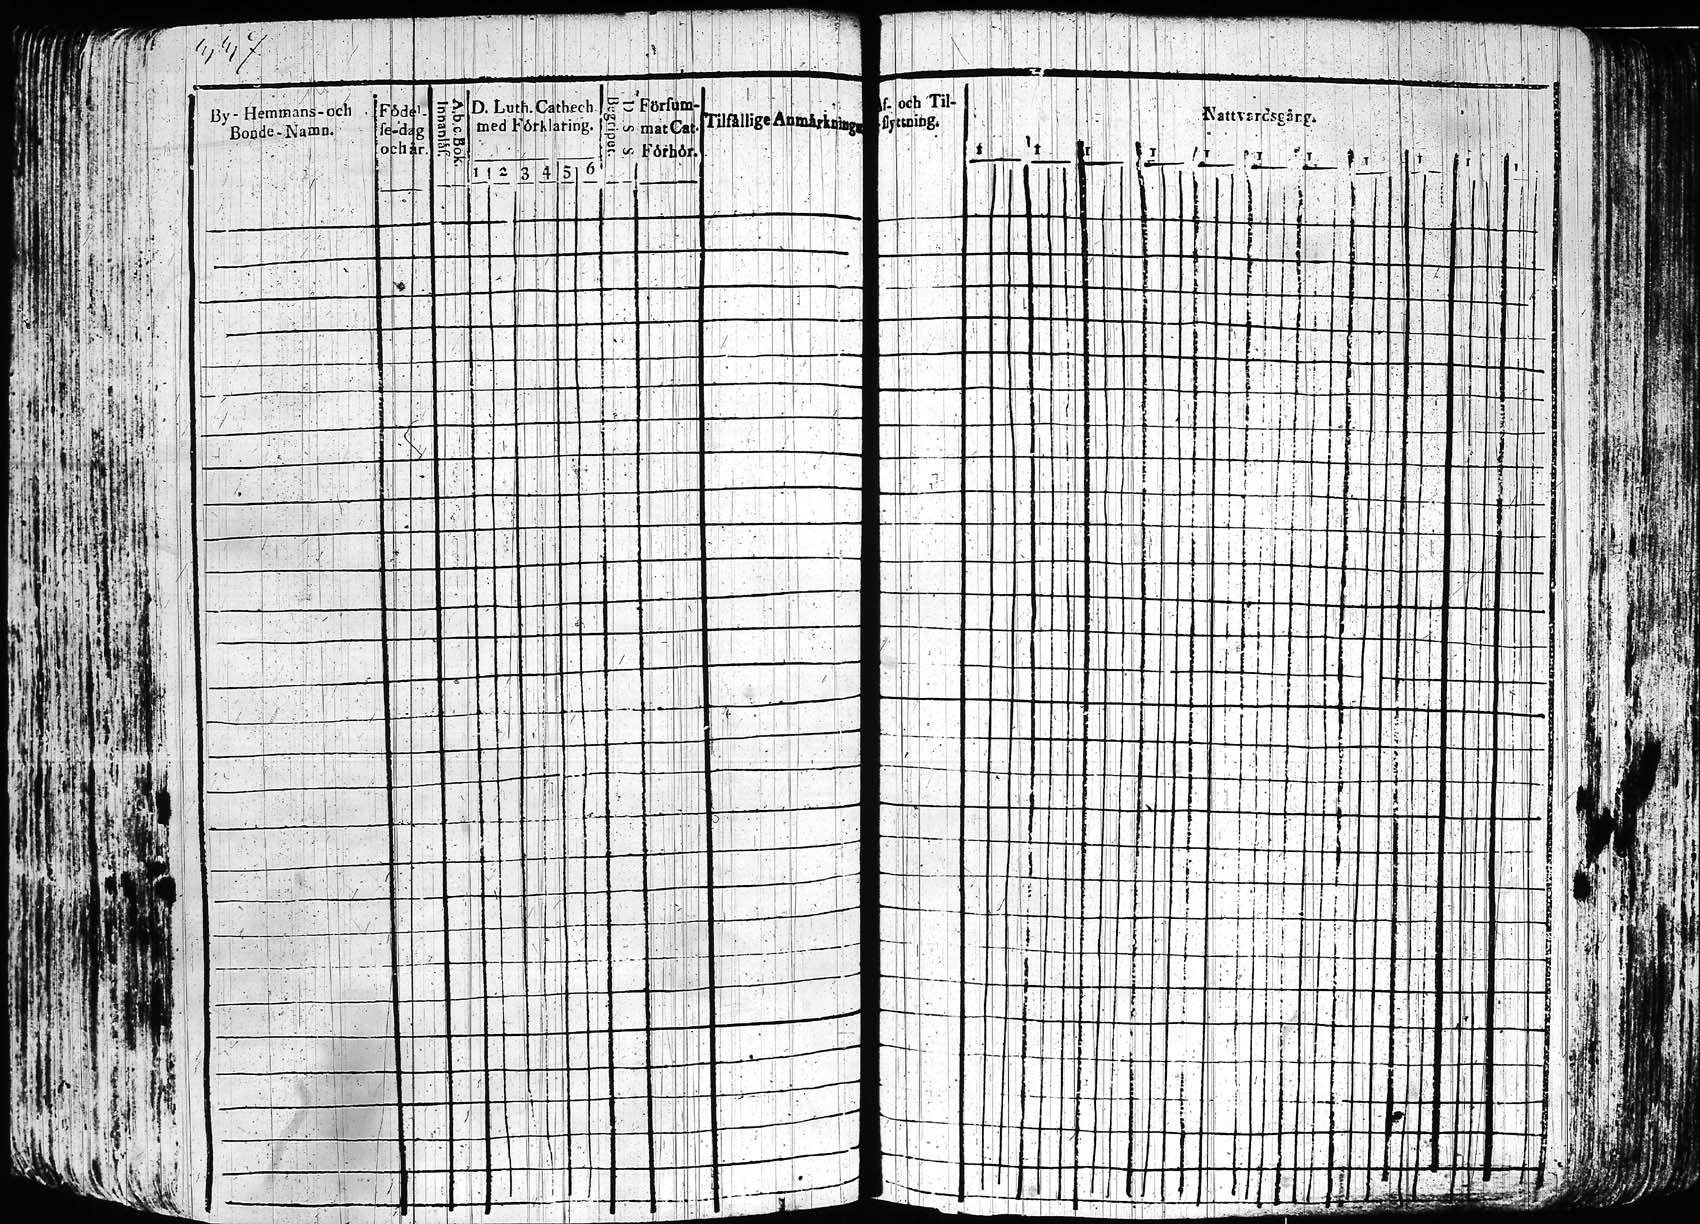 447
By-Hemmans-och
Bonde-Namn.
Födel-
se-dag
och år.
A b c Bok.
Innanläs.
D. Luth. Cathech.
med Förklaring.
1 2 3 4 5 6
Begriper.
Försum-
mat Cat.
Förhör.
Tilfällige Anmärkningar
Af- och Til-
flyttning.
Nattvardsgång.
1 1 1 1 1 1 1 1 1 1 1